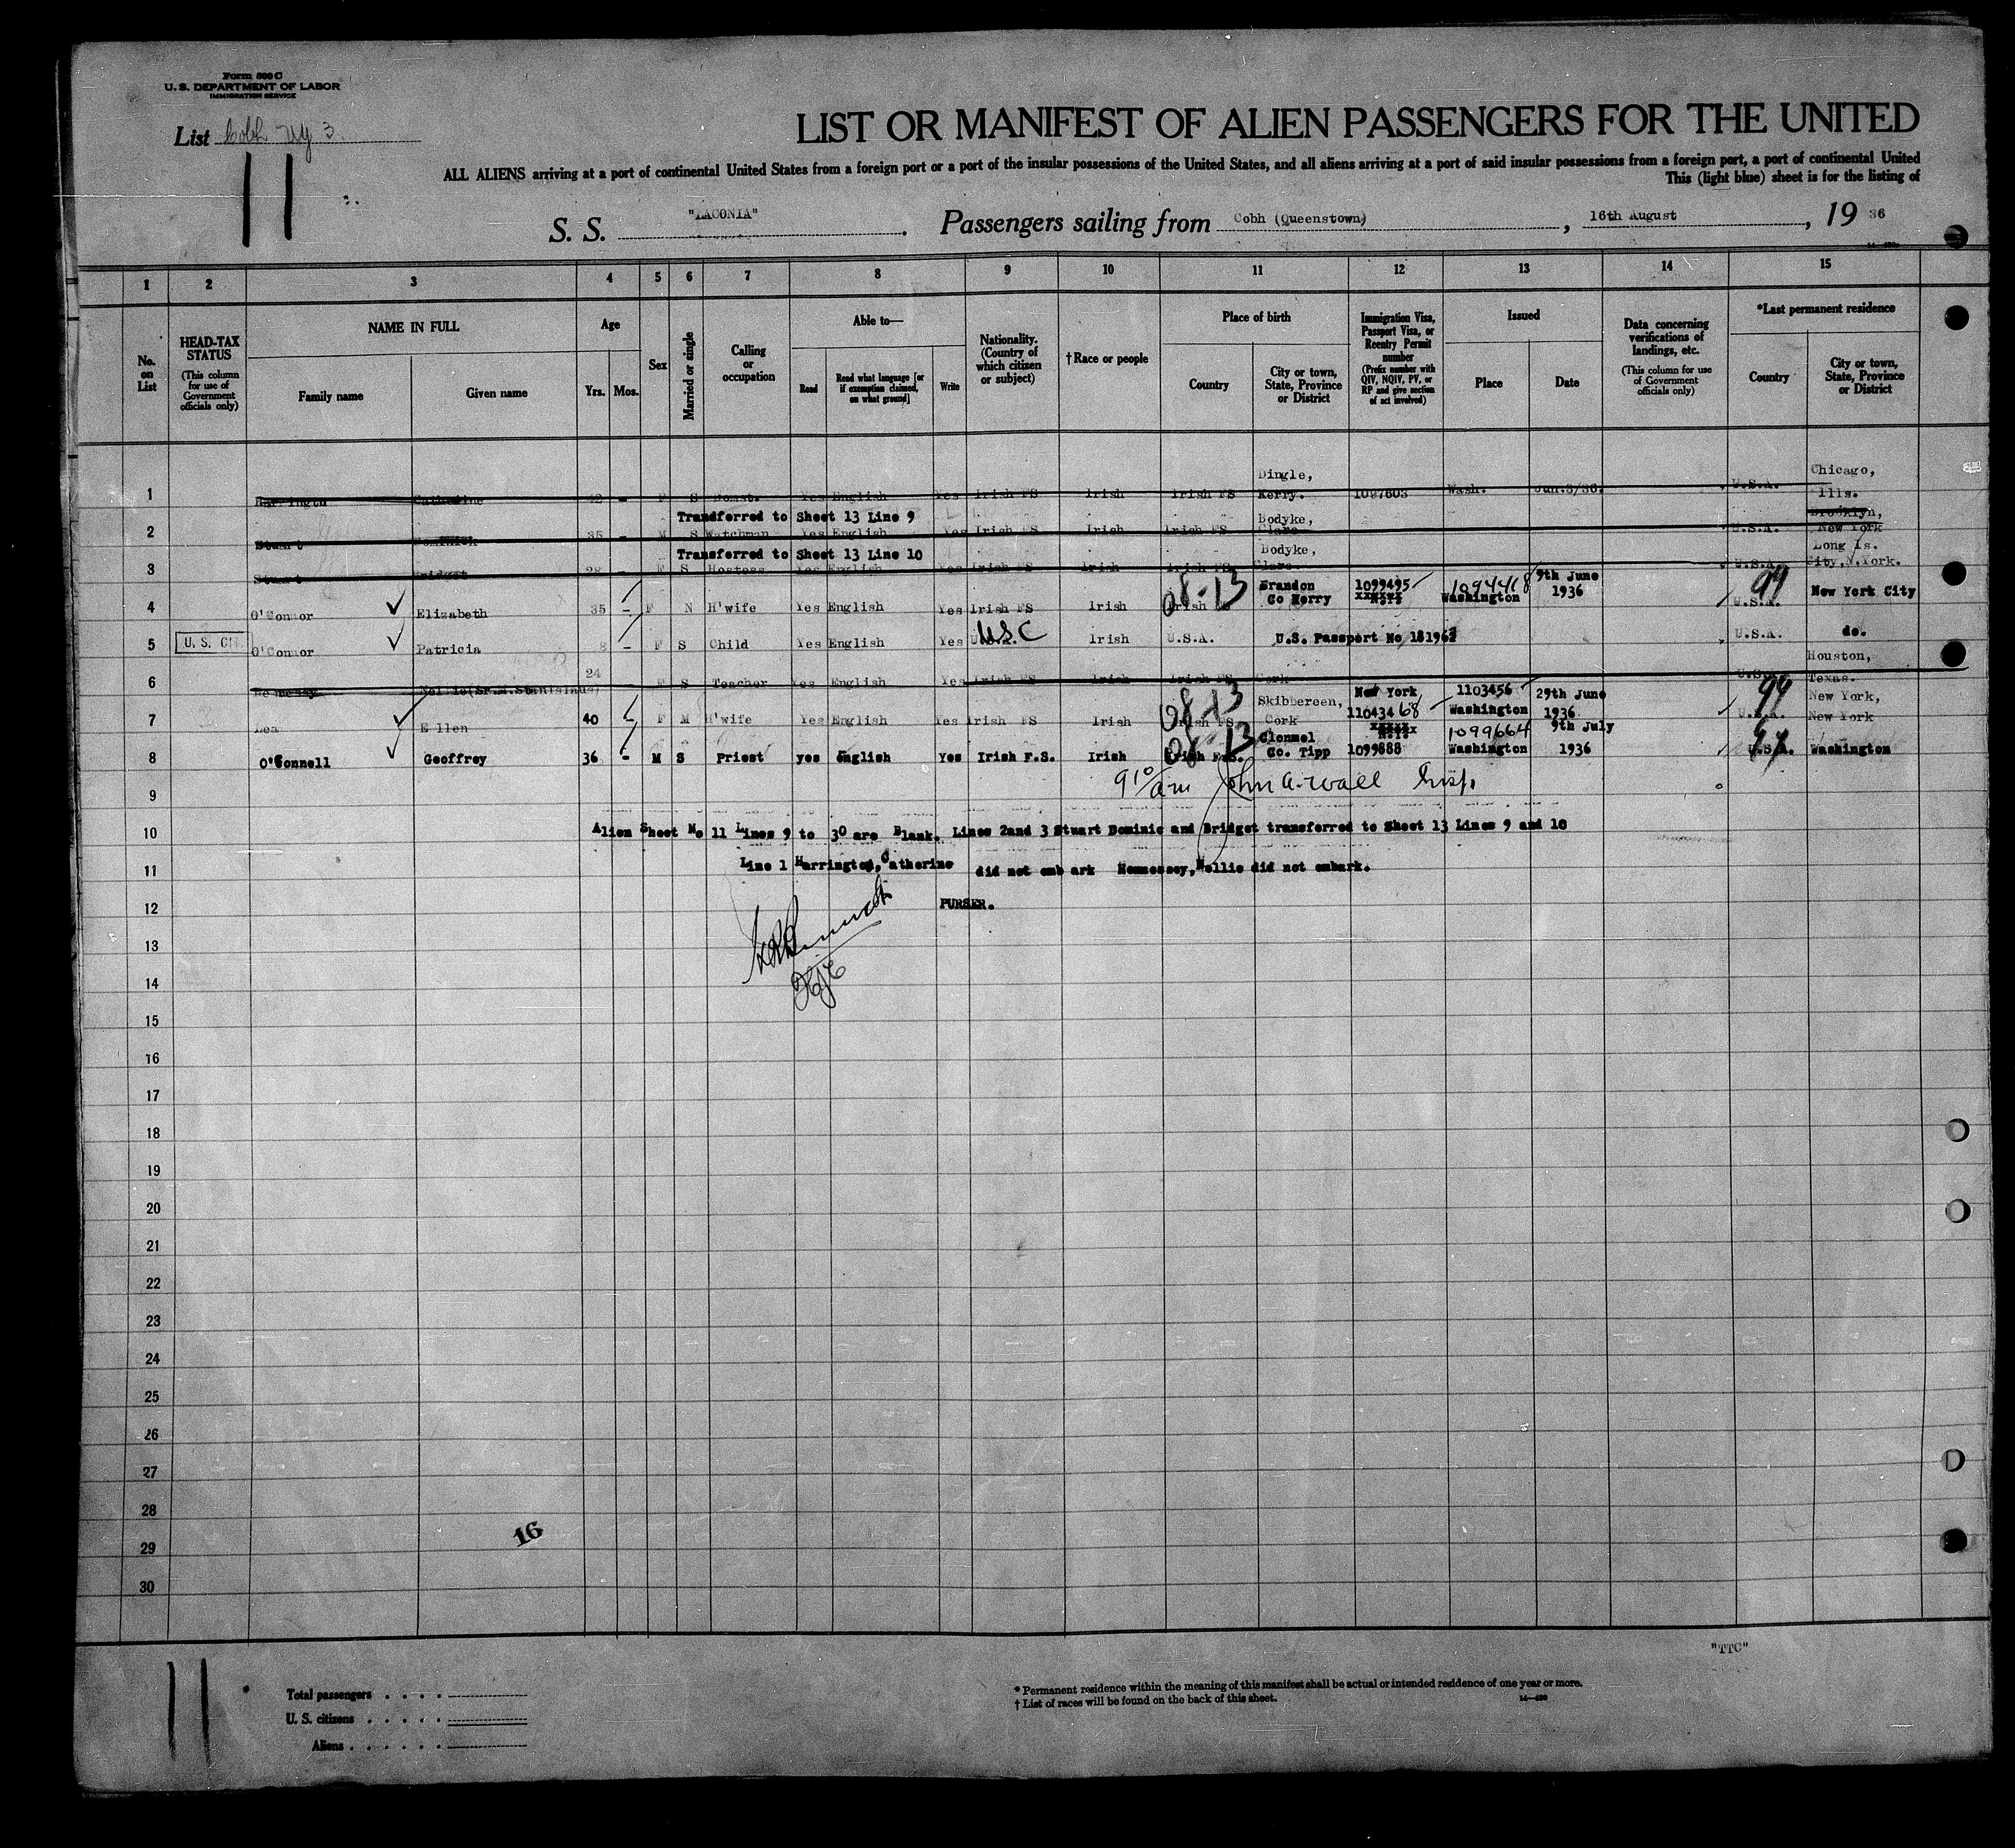 Form 500 C
U. S. DEPARTMENT OF LABOR
IMMIGRATION SERVICE
List Cobh NY 3
11
LIST OR MANIFEST OF ALIEN PASSENGERS FOR THE UNITED
ALL ALIENS arriving at a port of continental United States from a foreign port or a port of the insular possessions of the United States, and all aliens arriving at a port of said insular possessions from a foreign port, a port of continental United
This (light blue) sheet is for the listing of
S. S. "LACONIA". Passengers sailing from Cobh (Queenstown), 16th August, 19 36
1 2 3 4 5 6 7 8 9 10 11 12 13 14 15
No. on List
HEAD-TAX STATUS (This column for use of Government officials only)
NAME IN FULL
Family name Given name
Age
Yrs. Mos.
Sex
Married or single
Calling or occupation
Able to—
Read
Read what language [or if exemption claimed, on what ground]
Write
Nationality. (Country of which citizen or subject)
†Race or people
Place of birth
Country
City or town, State, Province or District
Immigration Visa, Passport Visa, or Reentry Permit number (Prefix number with QIV, NQIV, PV, or RP and give section of act involved)
Issued
Place Date
Data concerning verifications of landings, etc. (This column for use of Government officials only)
*Last permanent residence
Country
City or town, State, Province or District
1 Harrington Catherine 42 - F S Domst. Yes English Yes Irish FS Irish Irish FS Dingle, Kerry. 1097603 Wash. Jun.3/36. U.S.A. Chicago, Ills.
Transferred to Sheet 13 Line 9
2 Stuart Dominick 35 - M S Watchman Yes English Yes Irish FS Irish Irish FS Bodyke, Clare U.S.A. Brooklyn, New York
Transferred to Sheet 13 Line 10
3 Stuart Bridget 28 - F S Hostess Yes English Yes Irish FS Irish Irish FS Bodyke, Clare. U.S.A. Long Is. City, N.York.
4 O'Connor Elizabeth 35 - F N H'wife Yes English Yes Irish FS Irish Irish FS 08-13 Brandon Co Kerry 1099495 1094418 Washington 9th June 1936 U.S.A. 99 New York City
5 U. S. CIT. O'Connor Patricia 8 - F S Child Yes English Yes U.S.A. USC Irish U.S.A. U.S. Passport No 181963 U.S.A. do.
6 Hennessy Nellie(Sr.M.Stanislaus) 24 F S Teacher Yes English Yes Irish FS Irish Irish FS Cork U.S.A. Houston, Texas.
7 Lea Ellen 40 - F M H'wife Yes English Yes Irish FS Irish Irish FS 08-13 Skibbereen, Cork New York 11043468 1103456 Washington 29th June 1936 U.S.A. 99 New York, New York
8 O'Connell Geoffrey 36 - M S Priest yes English Yes Irish F.S. Irish Irish F.S. 08-13 Clonmel Co. Tipp 1099888 1099664 Washington 9th July 1936 U.S.A. Washington
9 9 10/am John A. Wall Insp.
10 Alien Sheet No 11 Lines 9 to 30 are Blank. Lines 2and 3 Stuart Dominic and Bridget transferred to Sheet 13 Lines 9 and 10
11 Line 1 Harrington, Catherine did not embark Hennessey, Nellie did not embark.
12 PURSER.
13
14
15
16
17
18
19
20
21
22
23
24
25
26
27
28
16
29
30
"TTC"
11
Total passengers
U. S. citizens
Aliens
* Permanent residence within the meaning of this manifest shall be actual or intended residence of one year or more.
† List of races will be found on the back of this sheet.
14—430